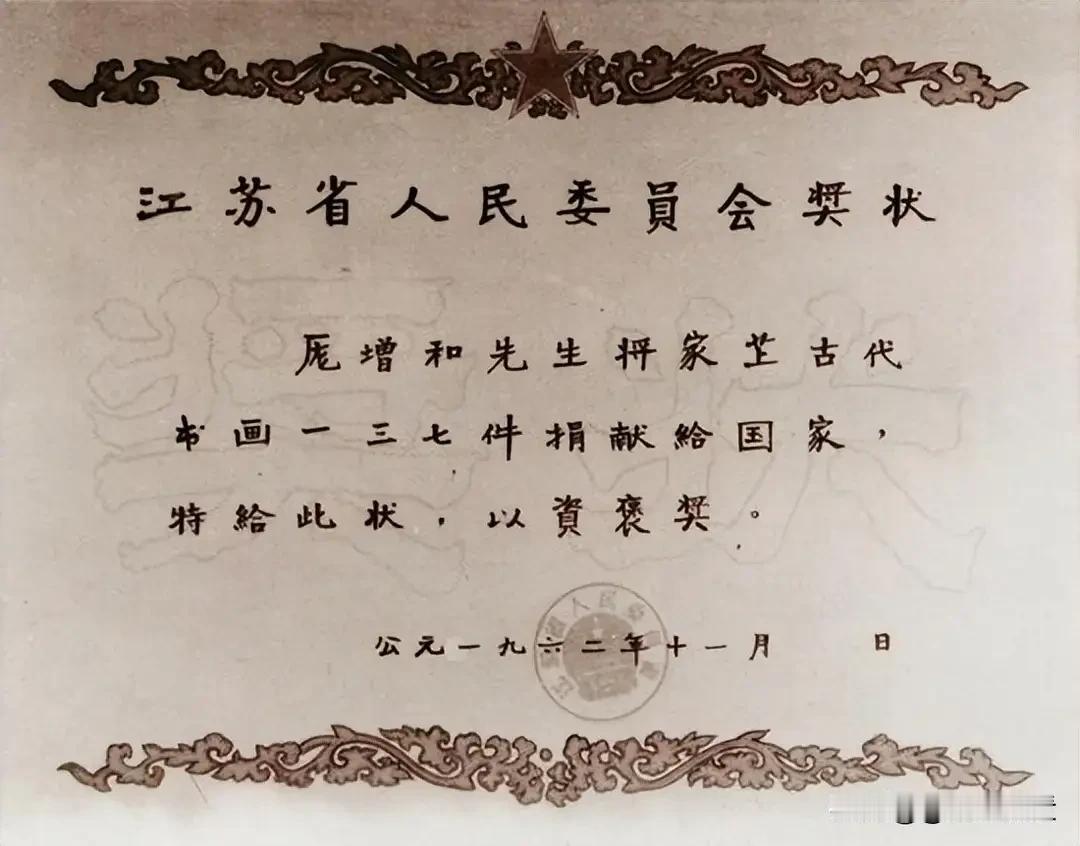 江苏省人民委員会奬状
厐增和先生将家藏古代
书画一三七件捐献給国家，
特給此状，以資褒奬。
公元一九六二年十一月 日